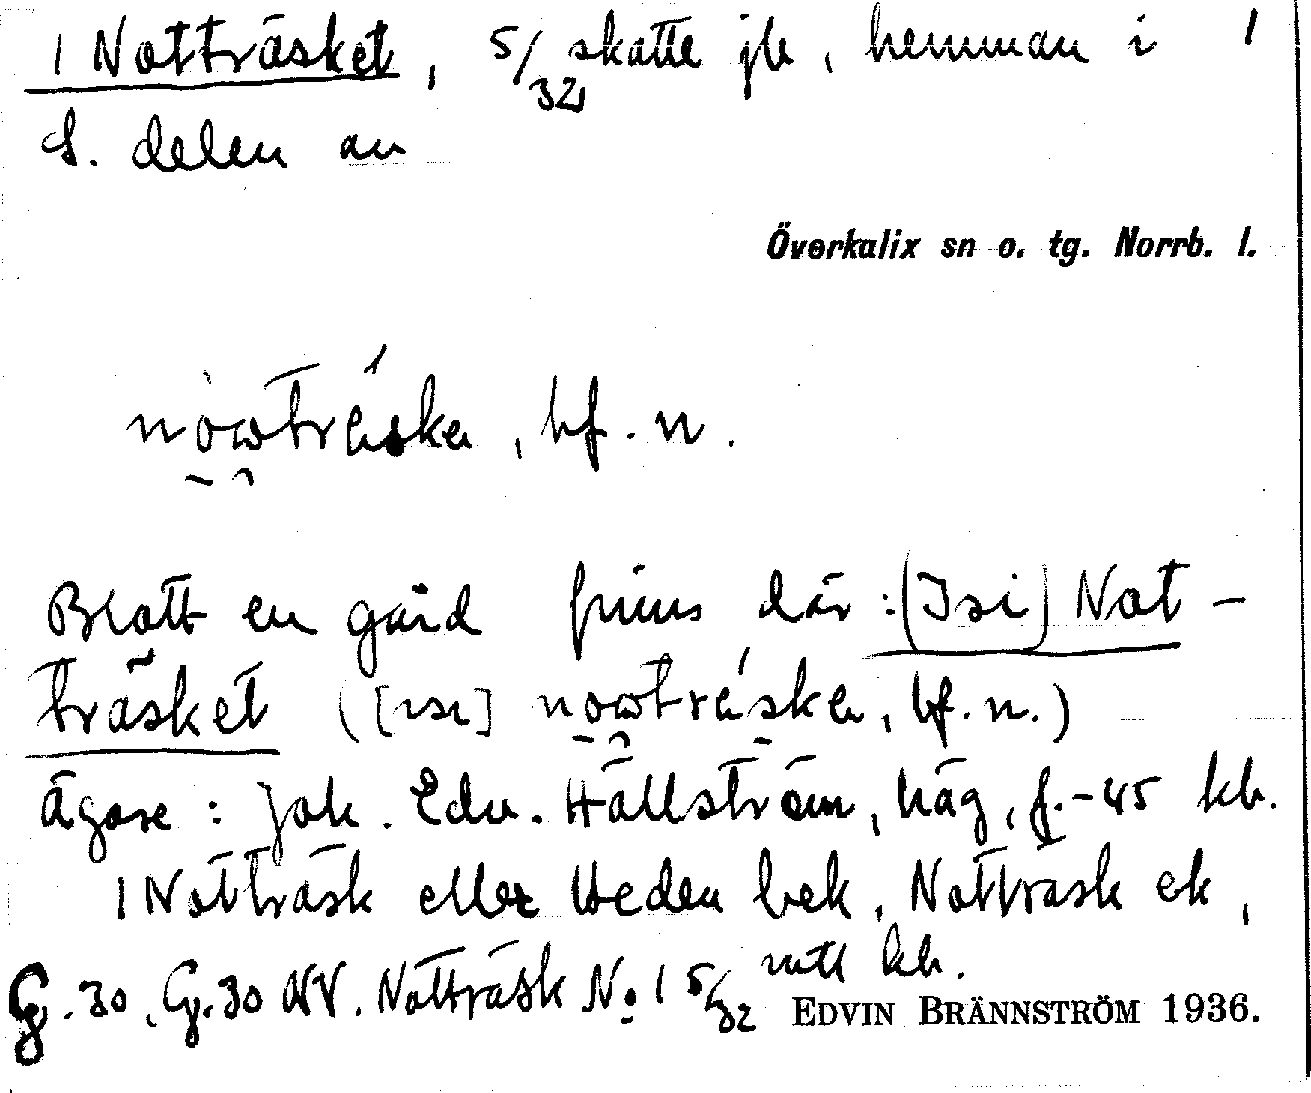 1 Notträsket, 5/32 skatte jb, hemman i 1
S. delen av
Överkalix sn o. tg. Norrb. l.
nowtrǽska, bf. n.
Blott en gård finns där: (Isi) Not-
träsket ([ısı] nowtrǽska, bf. n.)
Ägare: Joh. Edv. Hällström, häg, f. -45 kb.
1 Notträsk eller Heden bek, Notträsk ek,
G. 30, G. 30 NV. Notträsk No 1 5/32 mtl kb.
EDVIN BRÄNNSTRÖM 1936.